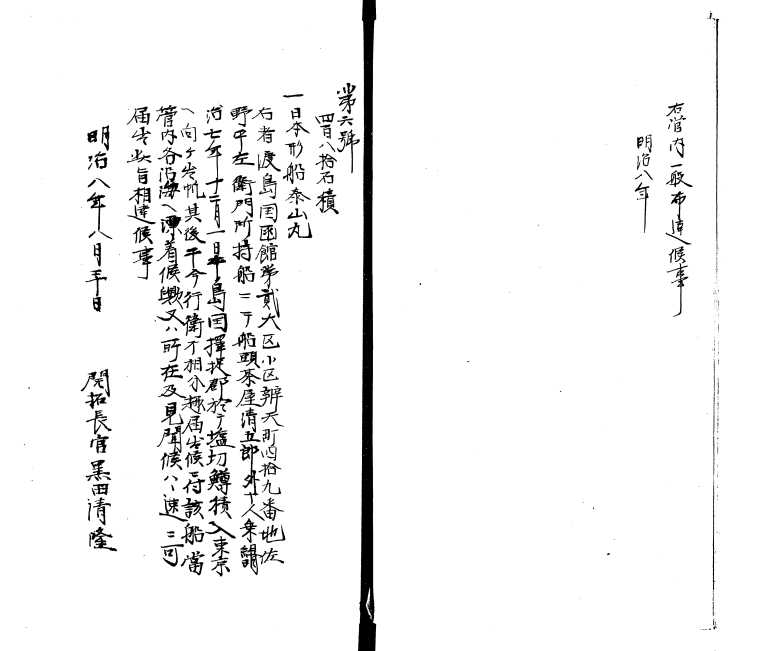 右管内一般布達候事
明治八年
第六號
四百八拾石積
一日本形船泰山丸
右者渡島国函館第貳大区小区辨天町四拾九番地佐
野平左衛門所持船ニテ船頭茶屋清五郎外十人乗組
治七年十二月一日千島国擇捉郡於テ塩切鱒積入東京
ヘ向ケ出帆其後于今行衛不相分趣届出候ニ付該船當
管内各沿海ヘ漂着候歟又ハ所在及見聞候ハヽ速ニ可
届出此旨相達候事
明治八年八月 日 開拓長官黒田清隆